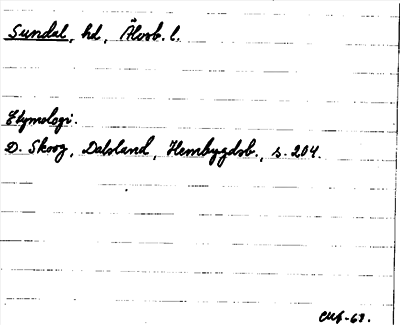 Sundal, hd, Älvsb. l.
Etymologi.
D. Skoog, Dalsland, Hembygdsb., s. 204.